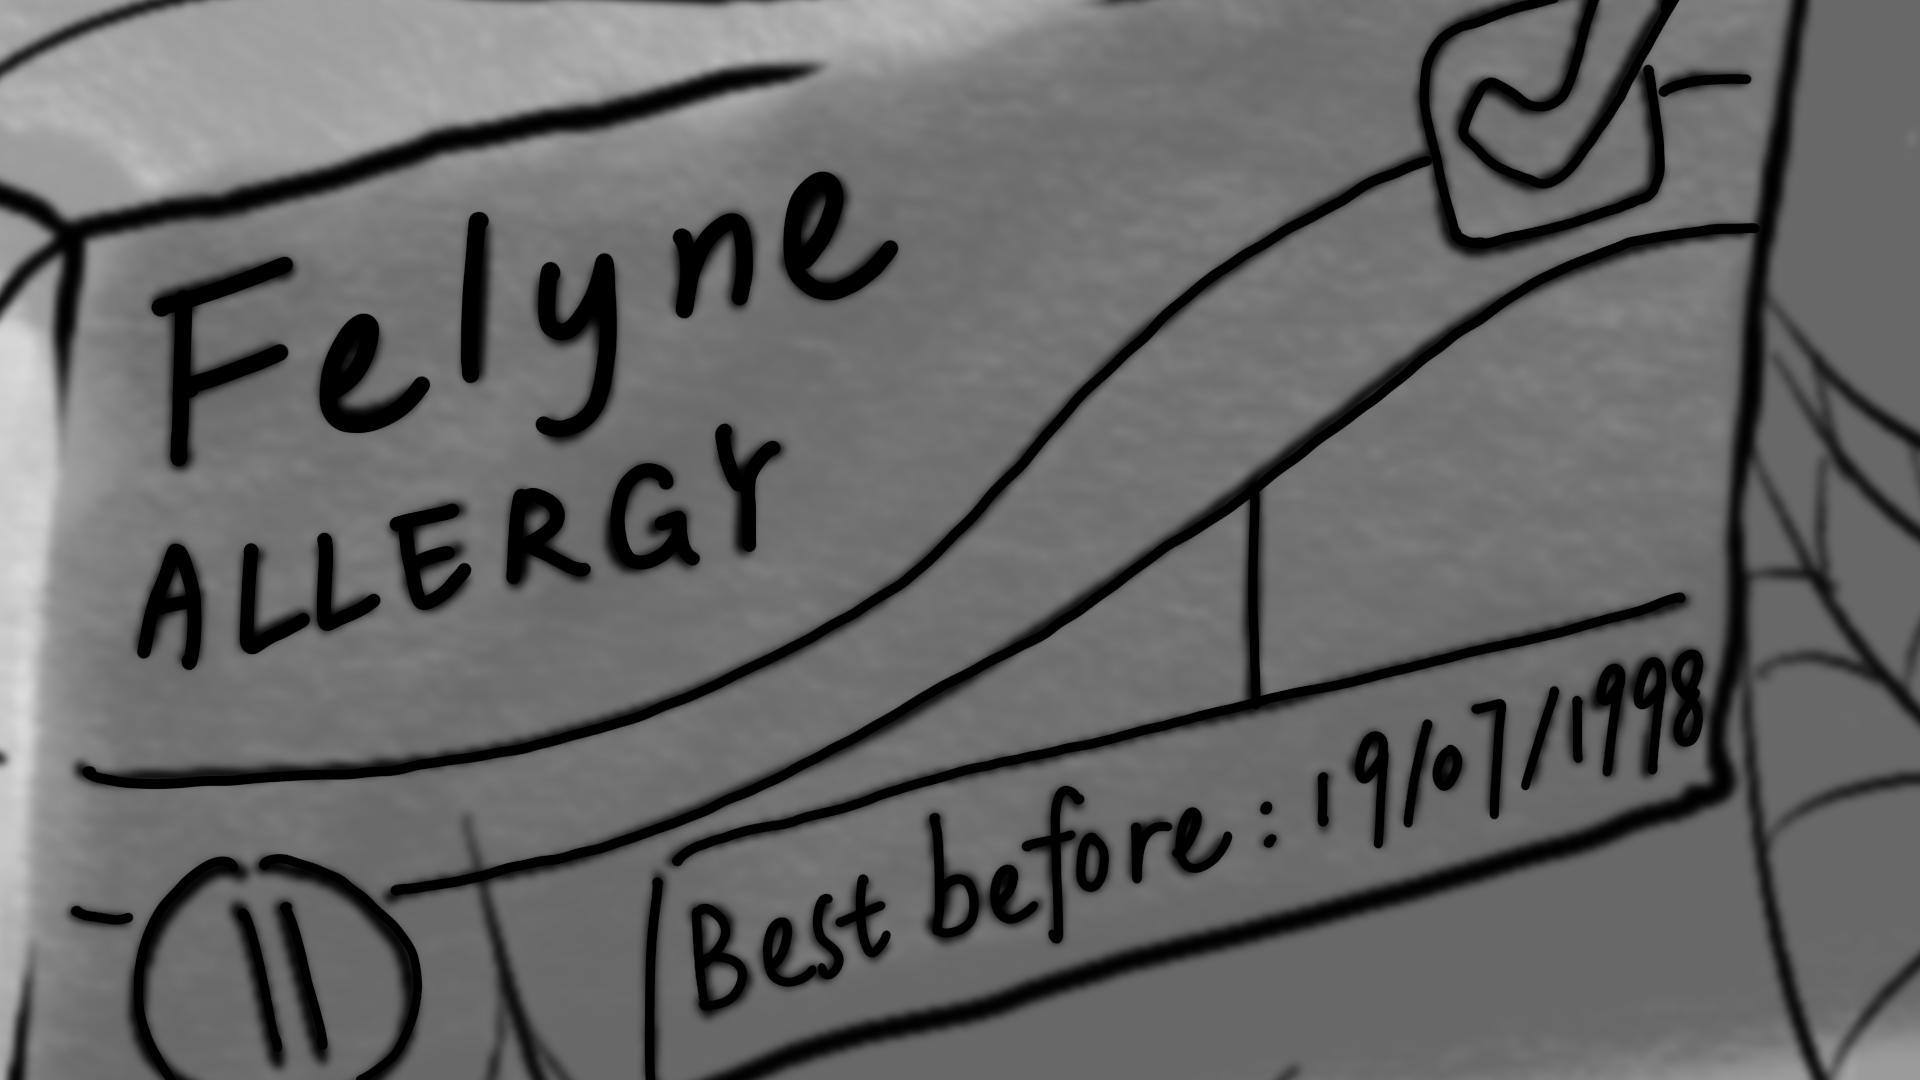 Felyne
ALLERGY
Best before: 19/07/1998